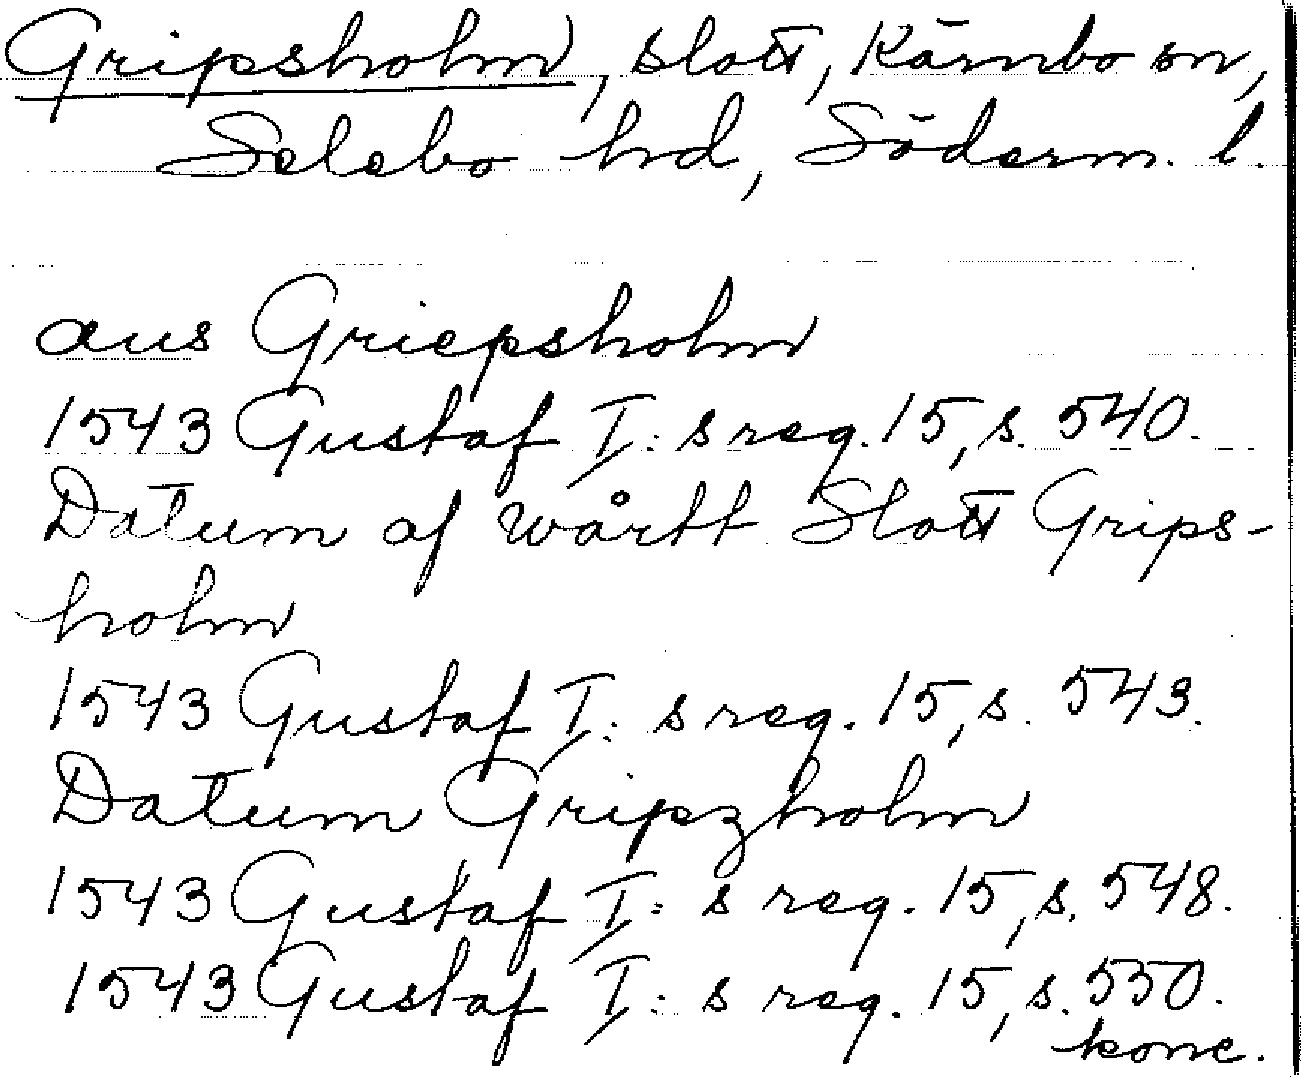 Gripsholm, slott, Kärnbo sn,
Selebo hd, Söderm. l.
aus Griepsholm
1543 Gustaf I:s reg. 15, s. 540.
Datum af wårtt Slott Grips-
holm
1543 Gustaf I:s reg. 15, s. 543.
Datum Gripzholm
1543 Gustaf I:s reg. 15, s. 548.
1543 Gustaf I:s reg. 15, s. 550.
konc.